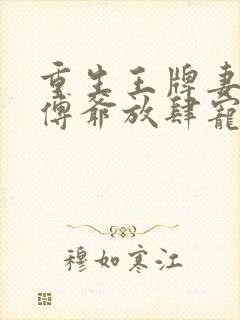 重生王牌妻
傅爺放肆寵
穆如寒江